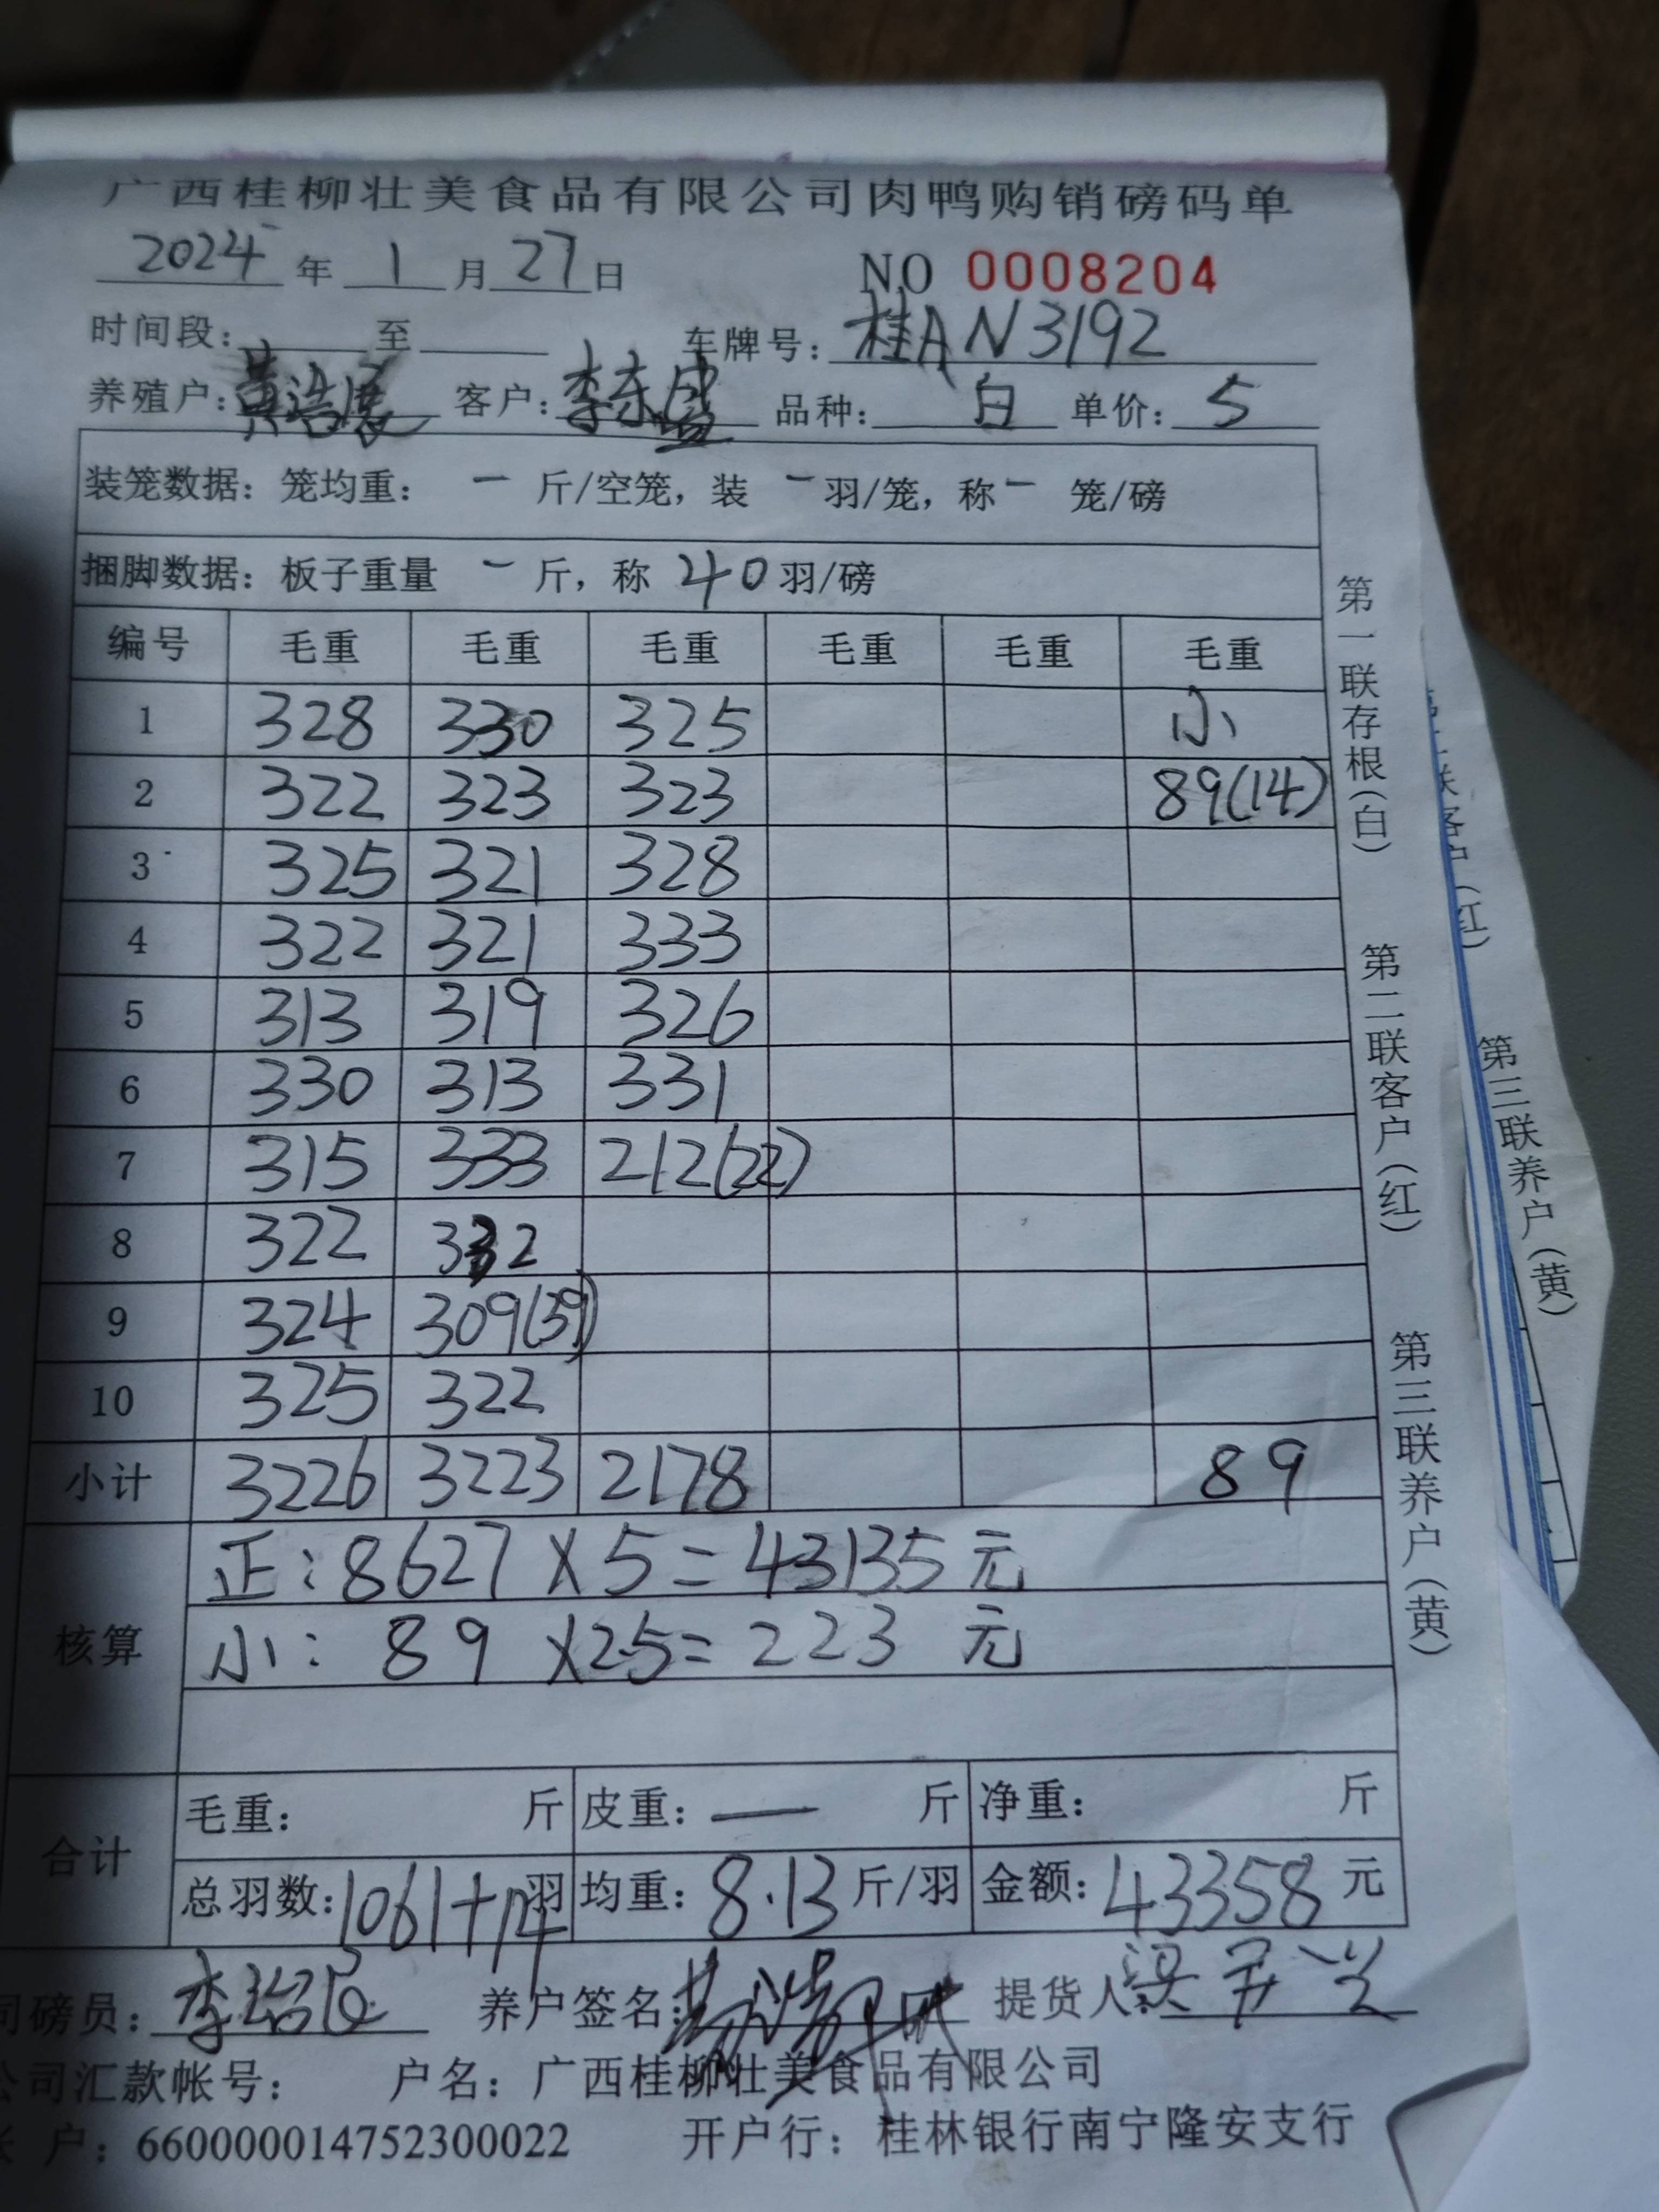 广西桂柳壮美食品有限公司肉鸭购销磅码单
2024 年 1 月 27 日 NO 0008204
时间段: 至 车牌号: 桂A N3192
养殖户: 黄浩展 客户: 李东盛 品种: 白 单价: 5
装笼数据: 笼均重: 一 斤/空笼, 装 一 羽/笼, 称 一 笼/磅
捆脚数据: 板子重量 一 斤, 称 40 羽/磅
编号 毛重 毛重 毛重 毛重 毛重 毛重
1 328 330 325 小
2 322 323 323 89(14)
3 325 321 328
4 322 321 333
5 313 319 326
6 330 313 331
7 315 333 212(22)
8 322 332
9 324 309(39)
10 325 322
小计 3226 3223 2178 89
核算
正: 8627 X 5 = 43135 元
小: 89 X2.5= 223 元
合计
毛重: 斤 皮重: — 斤 净重: 斤
总羽数: 1061+14 羽 均重: 8.13 斤/羽 金额: 43358 元
司磅员: 养户签名: 提货人:
公司汇款帐号: 户名: 广西桂柳壮美食品有限公司
户: 660000014752300022 开户行: 桂林银行南宁隆安支行
第一联存根(白) 第二联客户(红) 第三联养户(黄)
第三联养户(黄)